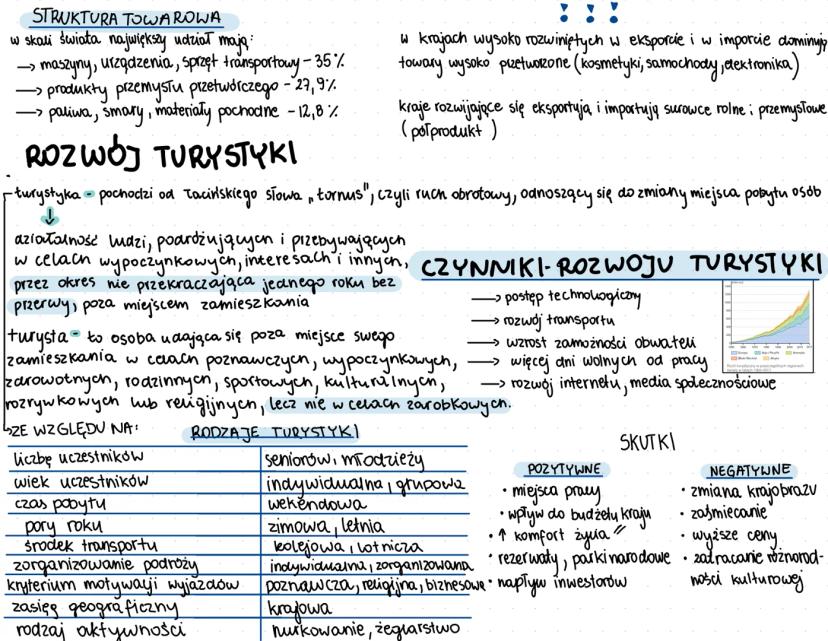 STRUKTURA TOWAROWA
w skali świata największy udział mają:
→ maszyny, urządzenia, sprzęt transportowy - 35%
→ produkty przemysłu przetwórczego - 27,9%
→ paliwa, smary, materiały pochodne - 12,8%
! ! !
w krajach wysoko rozwiniętych w eksporcie i w imporcie dominują
towary wysoko przetworzone (kosmetyki, samochody, elektronika)
kraje rozwijające się eksportują i importują surowce rolne i przemysłowe
(półprodukt)
ROZWÓJ TURYSTYKI
turystyka - pochodzi od łacińskiego słowa „tornus", czyli ruch obrotowy, odnoszący się do zmiany miejsca pobytu osób
działalność ludzi, podróżujących i przebywających
w celach wypoczynkowych, interesach i innych,
przez okres nie przekraczająca jednego roku bez
przerwy, poza miejscem zamieszkania
turysta - to osoba udająca się poza miejsce swego
zamieszkania w celach poznawczych, wypoczynkowych,
zdrowotnych, rodzinnych, sportowych, kulturalnych,
rozrywkowych lub religijnych, lecz nie w celach zarobkowych.
CZYNNIKI ROZWOJU TURYSTYKI
→ postęp technologiczny
→ rozwój transportu
→ wzrost zamożności obywateli
→ więcej dni wolnych od pracy
→ rozwój internetu, media społecznościowe
ZE WZGLĘDU NA: RODZAJE TURYSTYKI
liczbę uczestników seniorów, młodzieży
wiek uczestników indywidualna, grupowa
czas pobytu wekendowa
pory roku zimowa, letnia
środek transportu kolejowa, lotnicza
zorganizowanie podróży indywidualna, zorganizowana
kryterium motywacji wyjazdów poznawcza, religijna, biznesowa
zasięg geograficzny krajowa
rodzaj aktywności nurkowanie, żeglarstwo
SKUTKI
POZYTYWNE
• miejsca pracy
• wpływ do budżetu kraju
• ↑ komfort życia
• rezerwaty, parki narodowe
• napływ inwestorów
NEGATYWNE
• zmiana krajobrazu
• zaśmiecanie
• wyższe ceny
• zatracanie różnorod-
ności kulturowej